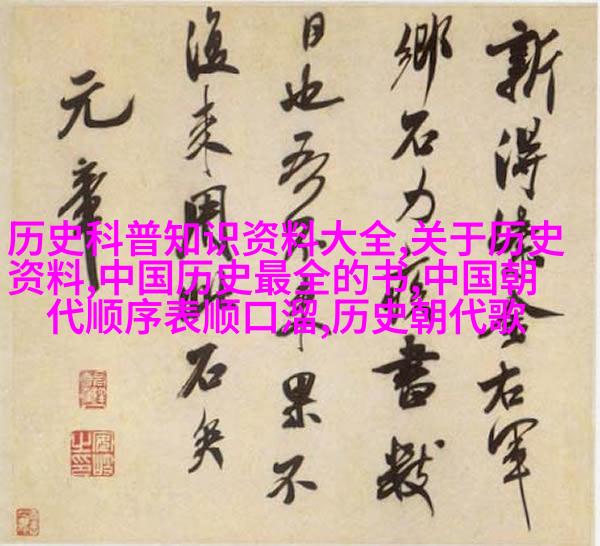 历史科普知识资料大全,关于历史
资料,中国历史最全的书,中国朝
代顺序表顺口溜,历史朝代歌
新得右軍
鄉石力書數
日也吾果不
復来石矣
元章